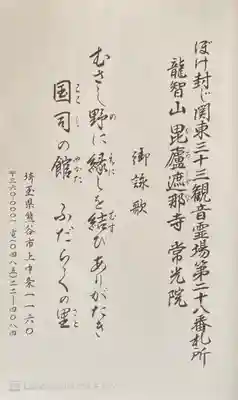 ぼけ封じ関東三十三観音霊場第二十八番札所
龍智山 毘盧遮那寺 常光院
御詠歌
むさし野に縁しを結ぶありがたき
国司の館 ふだらくの里
埼玉県熊谷市上中条一一六〇
〒三六〇-〇〇〇一 電(〇四八五)二二-四〇八四